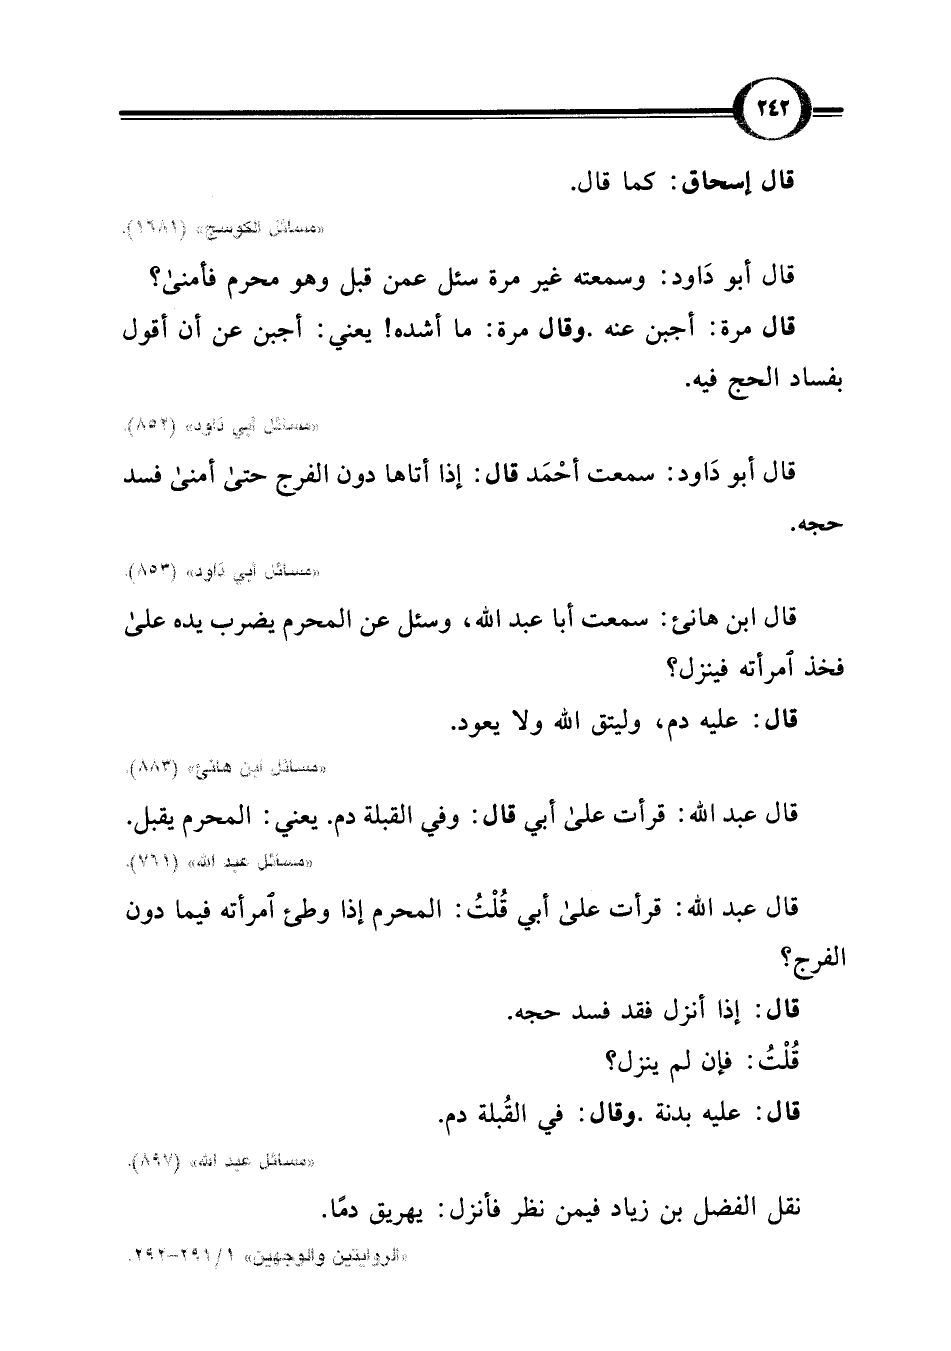 ٢٤٢
قال إسحاق: كما قال.
«مسائل الكوسج» (١٦٨١).
قال أبو دَاود: وسمعته غير مرة سئل عمن قبل وهو محرم فأمنىٰ؟
قال مرة: أجبن عنه .وقال مرة: ما أشده! يعني: أجبن عن أن أقول
بفساد الحج فيه.
«مسائل أبي دَاود» (٨٥٢).
قال أبو دَاود: سمعت أحْمَد قال: إذا أتاها دون الفرج حتىٰ أمنىٰ فسد
حجه.
«مسائل أبي دَاود» (٨٥٣).
قال ابن هانئ: سمعت أبا عبد الله، وسئل عن المحرم يضرب يده علىٰ
فخذ ٱمرأته فينزل؟
قال: عليه دم، وليتق الله ولا يعود.
«مسائل ابن هانئ» (٨٨٣).
قال عبد الله: قرأت علىٰ أبي قال: وفي القبلة دم. يعني: المحرم يقبل.
«مسائل عبد الله» (٧٦١).
قال عبد الله: قرأت علىٰ أبي قُلْتُ: المحرم إذا وطئ ٱمرأته فيما دون
الفرج؟
قال: إذا أنزل فقد فسد حجه.
قُلْتُ: فإن لم ينزل؟
قال: عليه بدنة .وقال: في القُبلة دم.
«مسائل عبد الله» (٨٩٧).
نقل الفضل بن زياد فيمن نظر فأنزل: يهريق دمًا.
«الروايتين والوجهين» ١/ ٢٩١-٢٩٢.